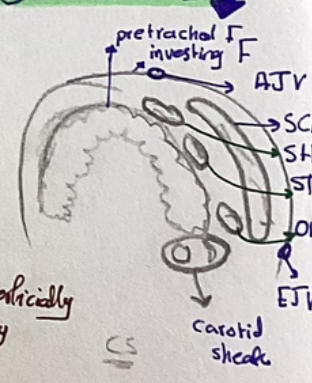 pretracheal F
investing F
AJV
SC
SH
ST
O
EJV
erficially
y
carotid
sheath
CS